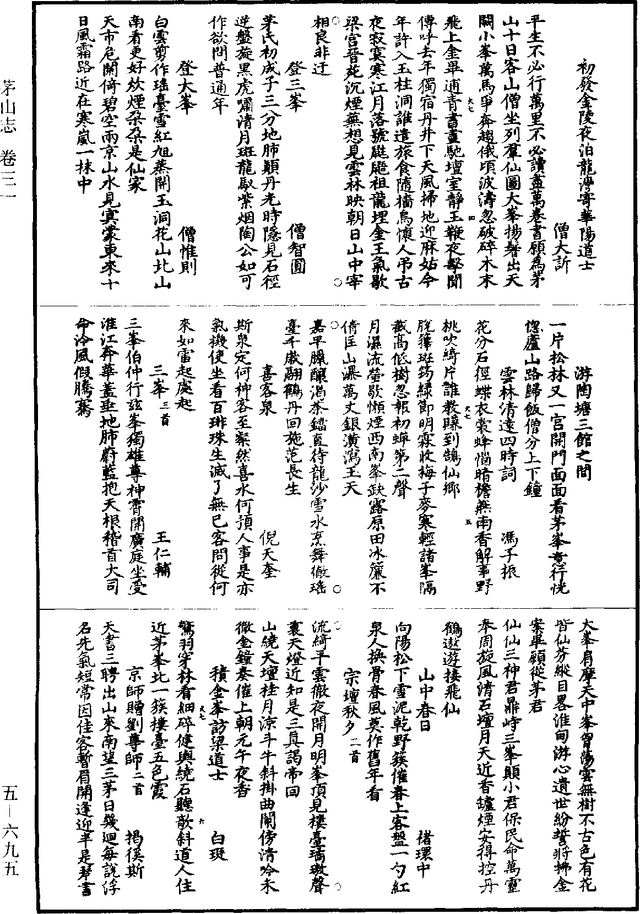 茅山志　卷三一
初發金陵夜泊龍灣寄華陽道士
僧大訢
平生不必行萬里不必讀盡萬卷書願為茅
山十日客山僧坐列羣仙圖大峯揚翥出天
闕小峯萬馬爭奔趨俄頃波濤忽破碎木末
飛上金畢逋青書晝馳壇室静玉鞭夜擊聞
傳呼去年獨宿丹井下天風掃地迎麻姑今
年許入玉柱洞誰遣旅食隨檣烏懷人弔古
夜寂寞寒江月落號鼯鼪祖龍埋金王氣歇
梁宫晉苑沉煙蕪想見雲林映朝日山中宰
相良非迂
登三峯
僧智圓
茅氏初成子三分地肺顛丹光時隱見石徑
逆盤旋黑虎嘯清月斑龍馭紫煙陶公如可
作欲問普通年
登大峯
僧惟則
白雲剪作瑶臺雪紅旭蒸開玉洞花山北山
南看更好炊煙朶朶是仙家
天市危闌倚碧空兩京山水見冥蒙東來十
日風霜路近在寒嵐一抹中
游陶塘三館之間
一片松林又一宫開門面面看茅峯意行恍
惚廬山路歸飯僧分上下鐘
雲林清遠四時詞
馮子振
花分石徑蝶衣裳蜂惱暗檐燕雨香解事野
桃吹綺片誰教賺到鶴仙鄉
脱籜斑筠緑節明霖收梅子麥寒輕諸峯隔
截高低樹忽報初蟬第二聲
月濕流螢歇懶煙西南峯缺露原田冰簾不
倚匡山瀑萬丈銀潢瀉玉天
嘉平臘釀渴茶鐺直待龍沙雪水烹舞徹瑶
臺千歲翮鶴丹回施范長生
喜客泉
倪天奎
斯泉定何神客至粲然喜水何預人事是亦
氣機使坐看百琲珠生滅了無已客問從何
來如雷起處起
三峯三首
王仁輔
三峯伯仲行兹峯獨雄尊神霄開廣庭坐受
淮江奔華蓋垂地肺蔚藍抱天根稽首大司
命泠風假騰騫
大峯肩摩天中峯胷蕩雲無樹不古色有花
皆仙芬縱目畧淮甸游心遺世紛誓將拂金
案畢願從茅君
仙仙三神君鼎峙三峯顛小君保民命萬靈
奉周旋風清石壇月天近香罏煙安得控丹
鶴遨遊接飛仙
山中春日
褚環中
向陽松下靈泥乾野蔟催春上客盤一勺紅
泉人换骨春風莫作舊年看
宗壇秋夕二首
流綺平雲徹夜開月明峯頂見樓臺璚璈聲
裏天燈近知是三真謁帝回
山繞天壇桂月凉斗牛斜掛曲闌傍清吟未
徹金鐘奏催上朝元午夜香
積金峯訪梁道士
白珽
鷺羽穿林看細碎健興繞石聽欹斜道人住
近茅峯北一簇樓臺五色霞
京師贈劉尊師二首
揭傒斯
天書三聘出山來南望三茅日幾迴每説浮
名先氣短常因佳客暫眉開逢迎半是琴書
五－六九五